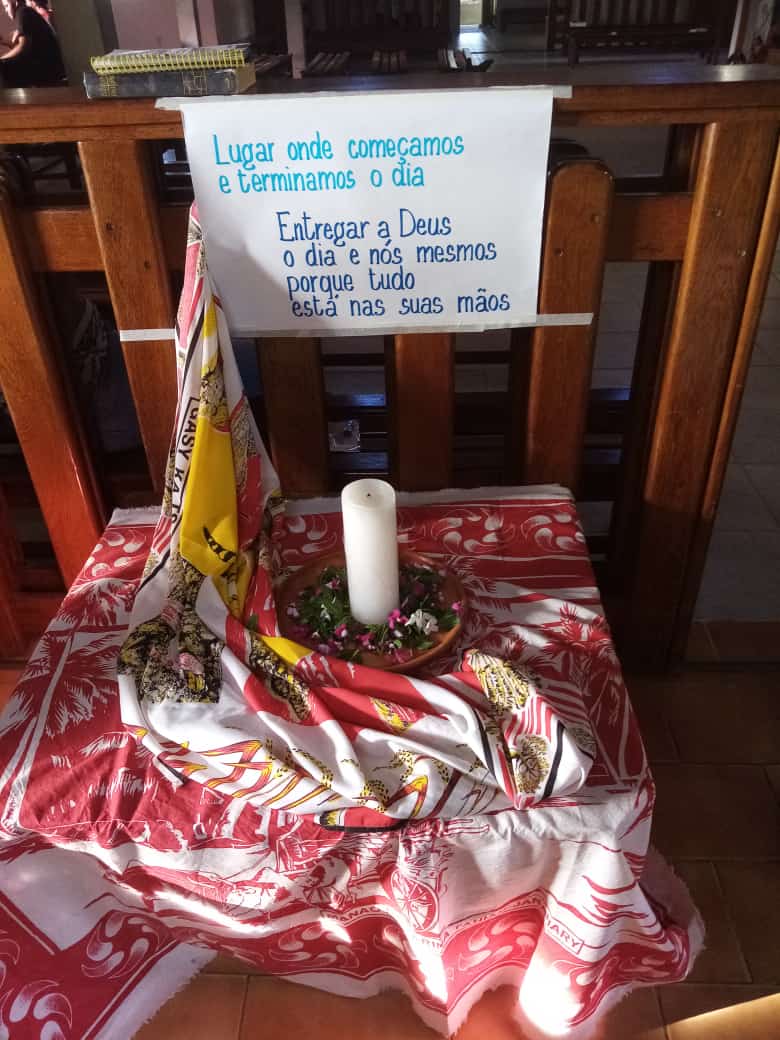 Lugar onde começamos
e terminamos o dia
Entregar a Deus
o dia e nós mesmos
porque tudo
está nas suas mãos